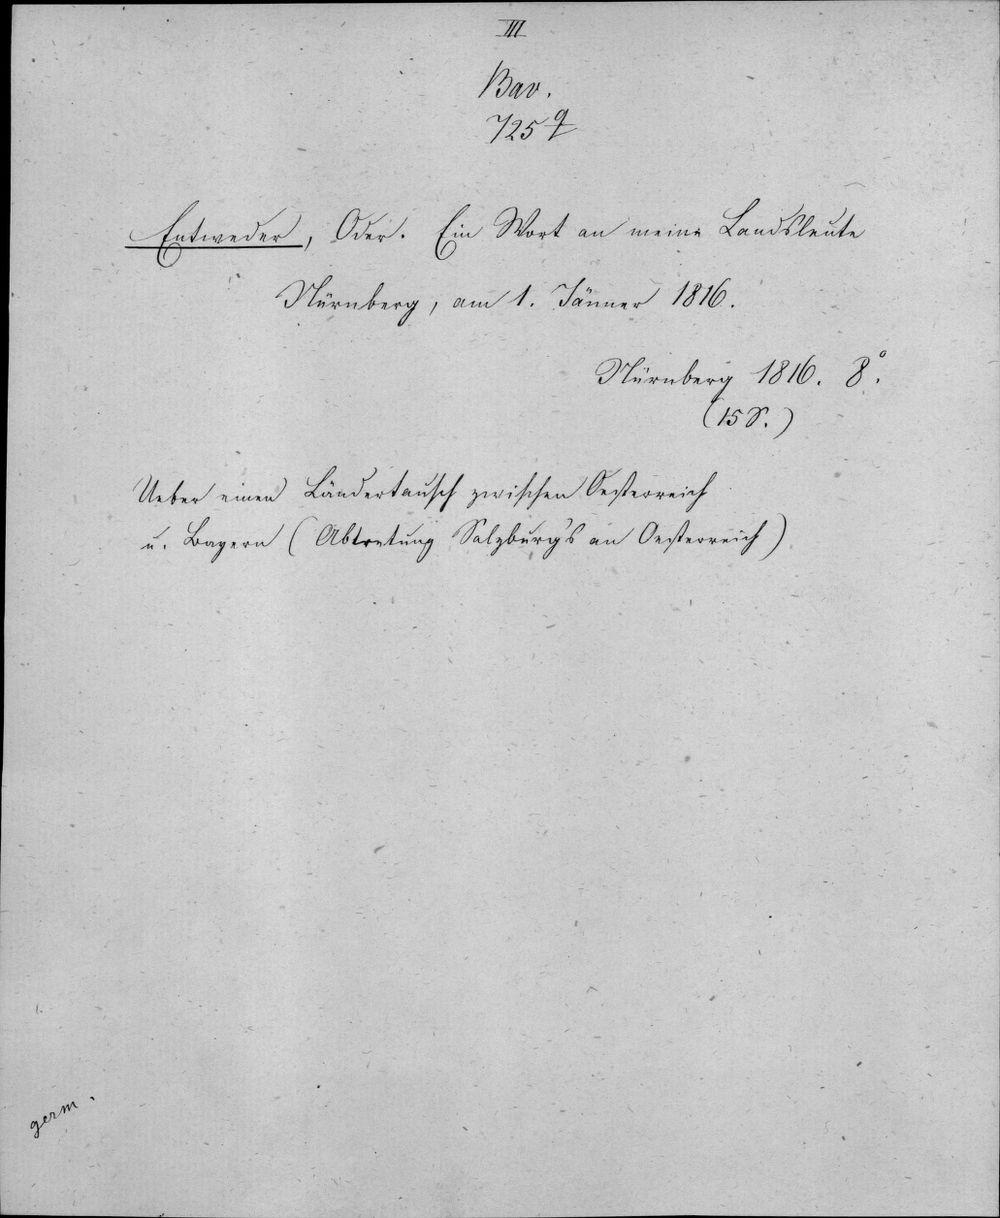 III
Bav.
725 q
Entweder, Oder. Ein Wort an meine Landsleute
Nürnberg, am 1. Jänner 1816.
Nürnberg 1816. 8°.
(15 S.)
Ueber einen Ländertausch zwischen Oesterreich
u. Bayern (Abtretung Salzburg's an Oesterreich)
germ.